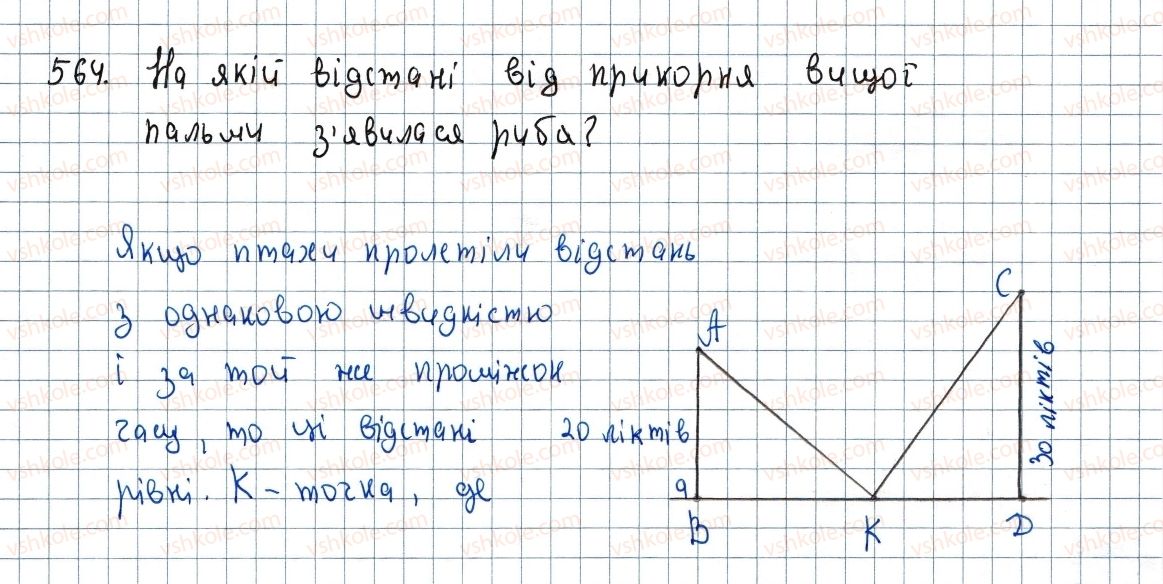 564. На якій відстані від прикорня вищої
пальми з'явилася риба?
Якщо птахи пролетіли відстань
з однаковою швидкістю
і за той же проміжок
часу, то ці відстані
рівні. К – точка, де
A
C
20 ліктів
30 ліктів
B
K
D
vshkole.com